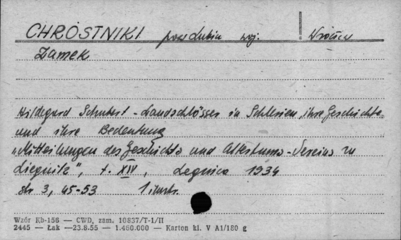 CHRÓSTNIKI pow. Lubin woj. Wrocław
Zamek
Hildegard Schubert - Landschlösser in Schlesien, ihre Geschichte
und ihre Bedeutung
"Mitteilungen des Geschichts und Altertums-Vereins zu
Liegnitz", t. XIV, Legnica 1934
str 3, 45-53 1 ilustr.
Wzór Kb-156 — CWD, zam. 10837/T-1/II
2445 — Łak —23.8.55 — 1.460.000 — Karton kl. V A1/180 g